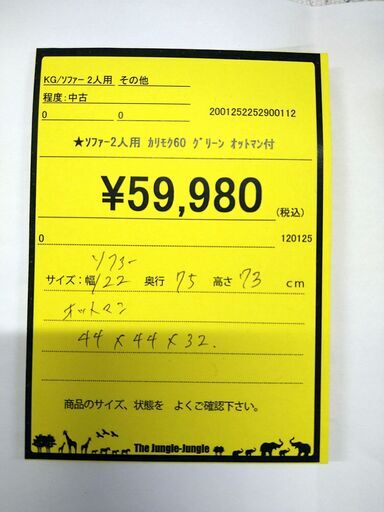 KG/ソファー 2人用 その他
程度:中古
0 0 2001252252900112
★ソファー2人用 カリモク60 グリーン オットマン付
¥59,980
(税込)
0 120125
ソファー
サイズ:幅 122 奥行 75 高さ 73 cm
オットマン
44×44×32.
商品のサイズ、状態を よくご確認下さい。
The Jungle-Jungle